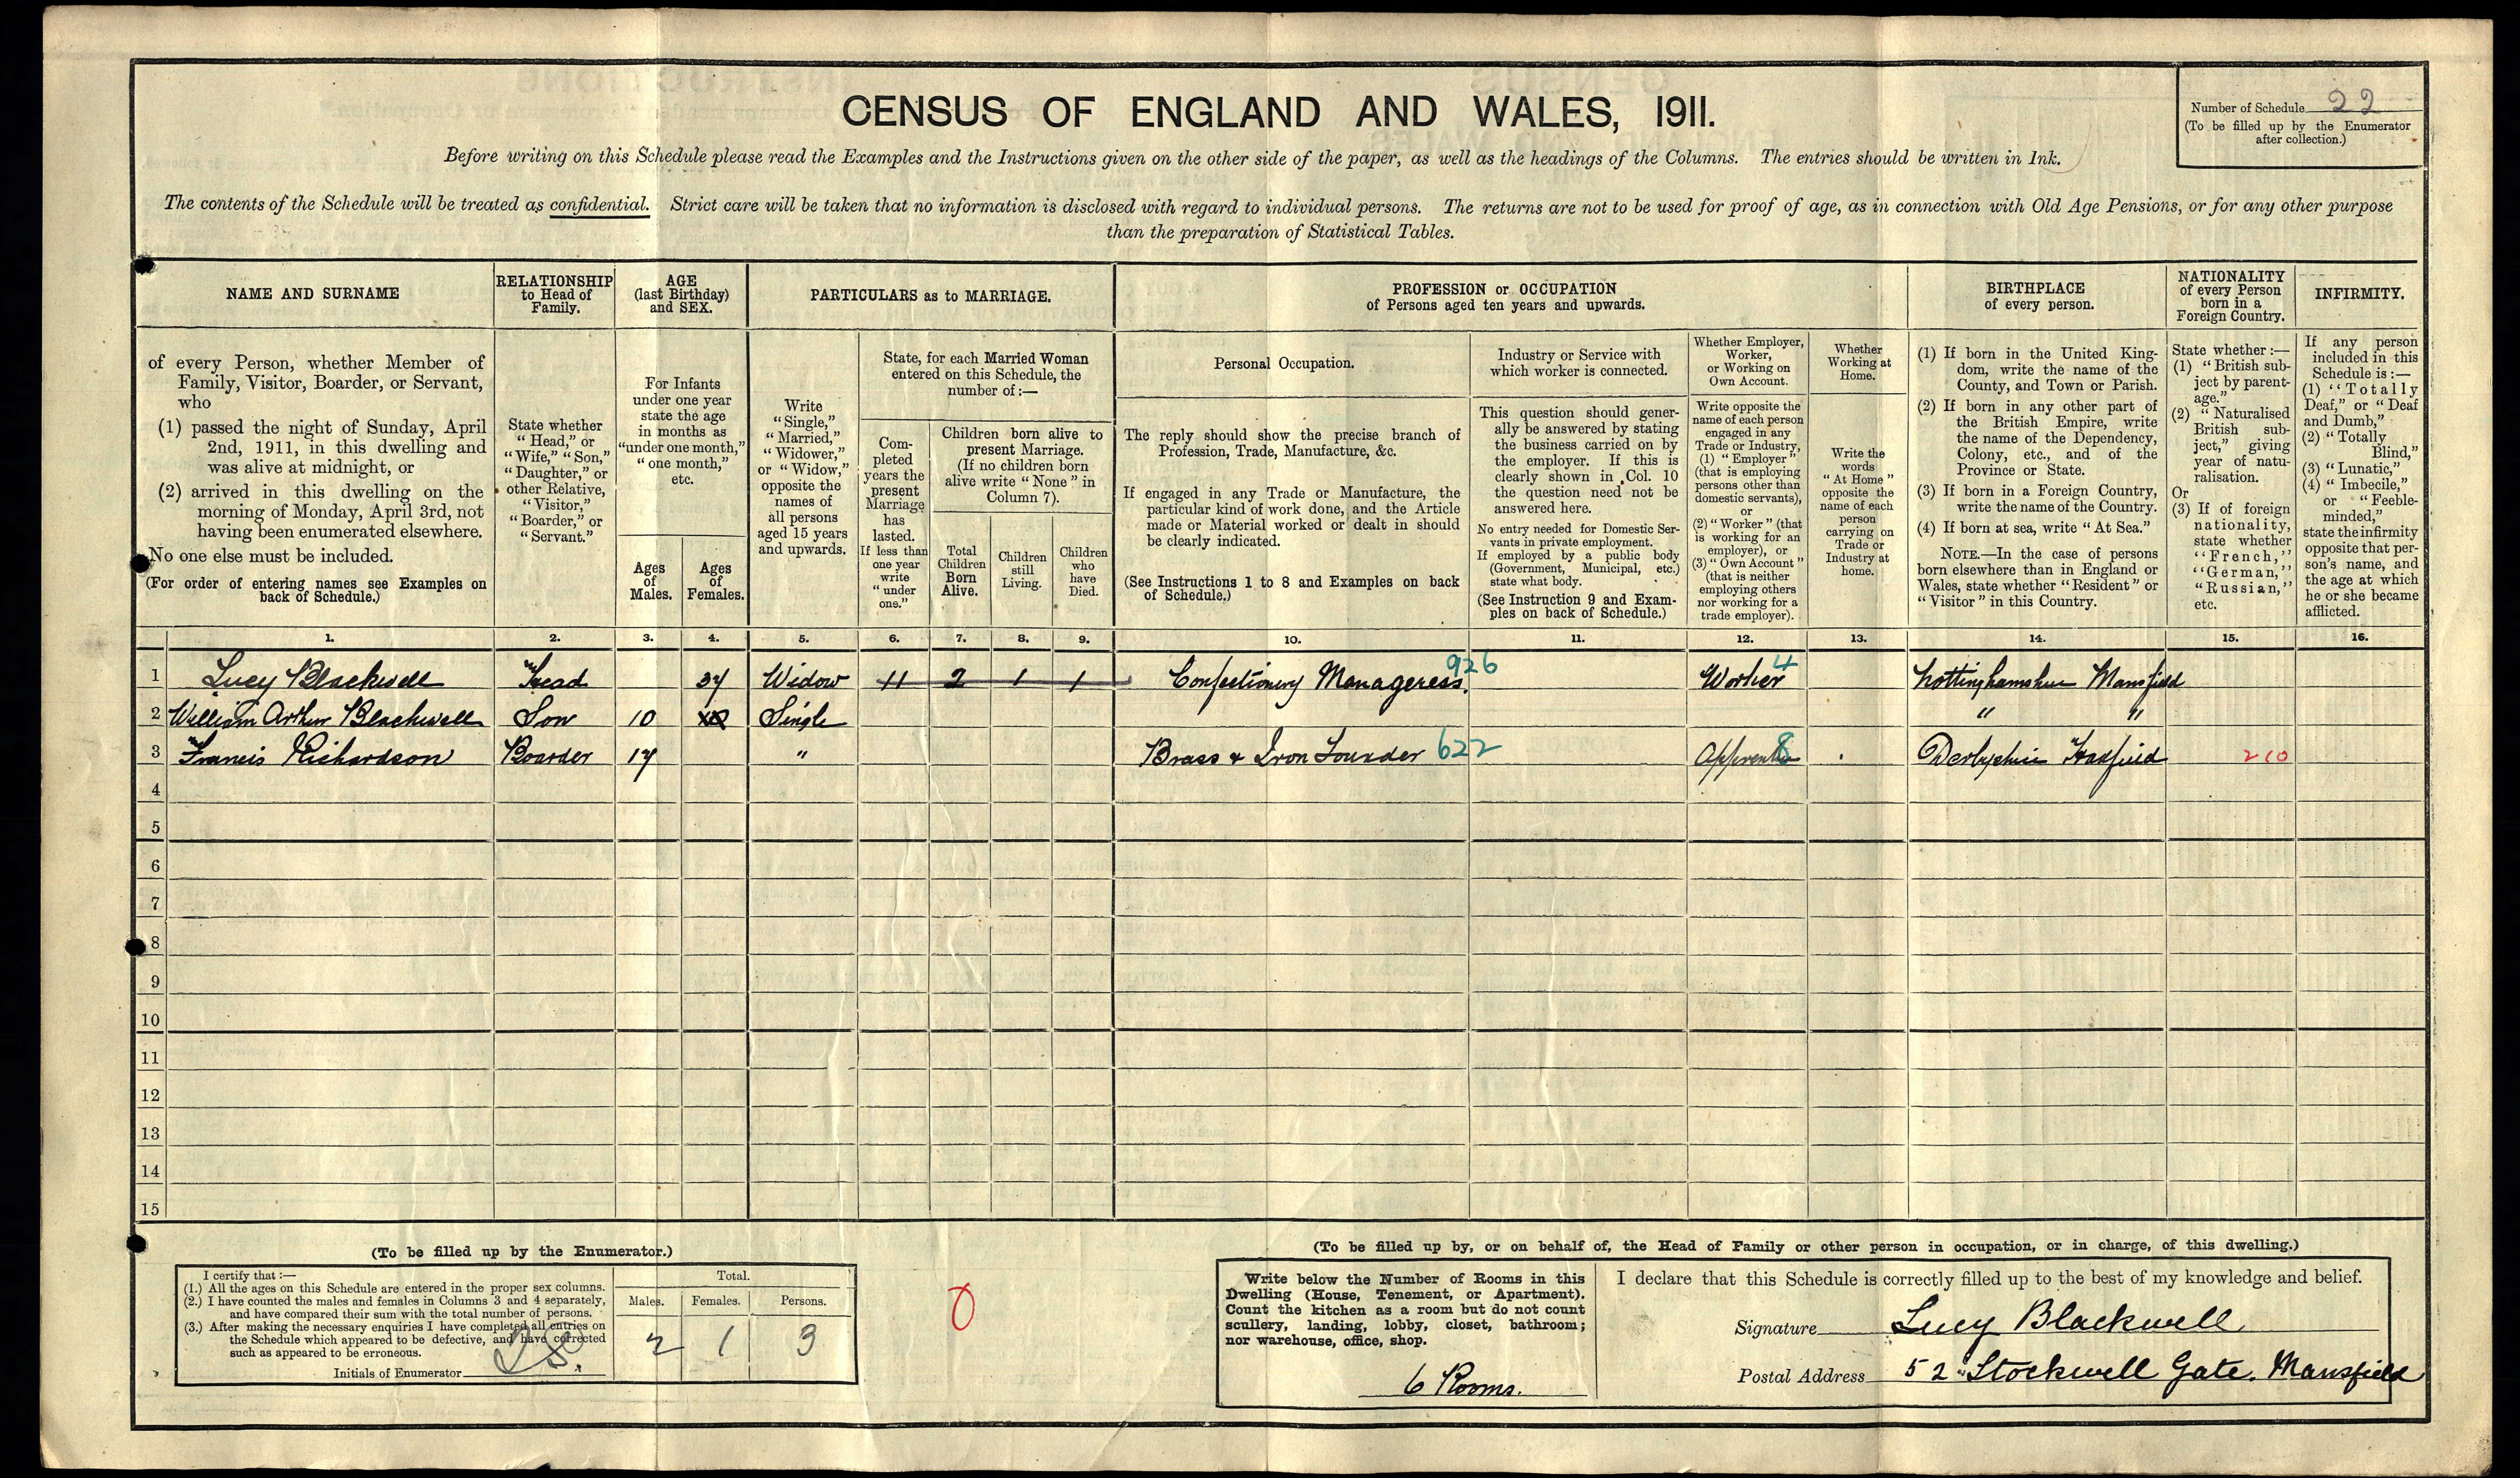 CENSUS OF ENGLAND AND WALES, 1911.
Number of Schedule 22
(To be filled up by the Enumerator
after collection.)
Before writing on this Schedule please read the Examples and the Instructions given on the other side of the paper, as well as the headings of the Columns. The entries should be written in Ink.
The contents of the Schedule will be treated as confidential. Strict care will be taken that no information is disclosed with regard to individual persons. The returns are not to be used for proof of age, as in connection with Old Age Pensions, or for any other purpose
than the preparation of Statistical Tables.
NAME AND SURNAME
of every Person, whether Member of
Family, Visitor, Boarder, or Servant,
who
(1) passed the night of Sunday, April
2nd, 1911, in this dwelling and
was alive at midnight, or
(2) arrived in this dwelling on the
morning of Monday, April 3rd, not
having been enumerated elsewhere.
No one else must be included.
(For order of entering names see Examples on
back of Schedule.)
RELATIONSHIP
to Head of
Family.
State whether
"Head," or
"Wife," "Son,"
"Daughter," or
other Relative,
"Visitor,"
"Boarder," or
"Servant."
AGE
(last Birthday)
and SEX.
For Infants
under one year
state the age
in months as
"under one month,"
"one month,"
etc.
Ages
of
Males.
Ages
of
Females.
PARTICULARS as to MARRIAGE.
Write
"Single,"
"Married,"
"Widower,"
or "Widow,"
opposite the
names of
all persons
aged 15 years
and upwards.
State, for each Married Woman
entered on this Schedule, the
number of:—
Com-
pleted
years the
present
Marriage
has
lasted.
If less than
one year
write
"under
one."
Children born alive to
present Marriage.
(If no children born
alive write "None" in
Column 7).
Total
Children
Born
Alive.
Children
still
Living.
Children
who
have
Died.
PROFESSION or OCCUPATION
of Persons aged ten years and upwards.
Personal Occupation.
The reply should show the precise branch of
Profession, Trade, Manufacture, &c.
If engaged in any Trade or Manufacture, the
particular kind of work done, and the Article
made or Material worked or dealt in should
be clearly indicated.
(See Instructions 1 to 8 and Examples on back
of Schedule.)
Industry or Service with
which worker is connected.
This question should gener-
ally be answered by stating
the business carried on by
the employer. If this is
clearly shown in Col. 10
the question need not be
answered here.
No entry needed for Domestic Ser-
vants in private employment.
If employed by a public body
(Government, Municipal, etc.)
state what body.
(See Instruction 9 and Exam-
ples on back of Schedule.)
Whether Employer,
Worker,
or Working on
Own Account.
Write opposite the
name of each person
engaged in any
Trade or Industry,
(1) "Employer"
(that is employing
persons other than
domestic servants),
or
(2) "Worker" (that
is working for an
employer), or
(3) "Own Account"
(that is neither
employing others
nor working for a
trade employer).
Whether
Working at
Home.
Write the
words
"At Home"
opposite the
name of each
person
carrying on
Trade or
Industry at
home.
BIRTHPLACE
of every person.
(1) If born in the United King-
dom, write the name of the
County, and Town or Parish.
(2) If born in any other part of
the British Empire, write
the name of the Dependency,
Colony, etc., and of the
Province or State.
(3) If born in a Foreign Country,
write the name of the Country.
(4) If born at sea, write "At Sea."
NOTE.—In the case of persons
born elsewhere than in England or
Wales, state whether "Resident" or
"Visitor" in this Country.
NATIONALITY
of every Person
born in a
Foreign Country.
State whether:—
(1) "British sub-
ject by parent-
age."
(2) "Naturalised
British sub-
ject," giving
year of natu-
ralisation.
Or
(3) If of foreign
nationality,
state whether
"French,"
"German,"
"Russian,"
etc.
INFIRMITY.
If any person
included in this
Schedule is:—
(1) "Totally
Deaf," or "Deaf
and Dumb,"
(2) "Totally
Blind,"
(3) "Lunatic,"
(4) "Imbecile,"
or "Feeble-
minded,"
state the infirmity
opposite that per-
son's name, and
the age at which
he or she became
afflicted.
1. 2. 3. 4. 5. 6. 7. 8. 9. 10. 11. 12. 13. 14. 15. 16.
1 Lucy Blackwell Head 37 Widow 11 2 1 1 Confectionery Manageress. 926 Worker 4 Nottinghamshire Mansfield
2 William Arthur Blackwell Son 10 Single " "
3 Francis Richardson Boarder 17 " Brass & Iron Founder 622 Apprentice 8 Derbyshire Hadfield 210
4
5
6
7
8
9
10
11
12
13
14
15
(To be filled up by the Enumerator.)
I certify that:—
(1.) All the ages on this Schedule are entered in the proper sex columns.
(2.) I have counted the males and females in Columns 3 and 4 separately,
and have compared their sum with the total number of persons.
(3.) After making the necessary enquiries I have completed all entries on
the Schedule which appeared to be defective, and have corrected
such as appeared to be erroneous.
Initials of Enumerator
Total.
Males. Females. Persons.
2 1 3
0
(To be filled up by, or on behalf of, the Head of Family or other person in occupation, or in charge, of this dwelling.)
Write below the Number of Rooms in this
Dwelling (House, Tenement, or Apartment).
Count the kitchen as a room but do not count
scullery, landing, lobby, closet, bathroom;
nor warehouse, office, shop.
6 Rooms.
I declare that this Schedule is correctly filled up to the best of my knowledge and belief.
Signature Lucy Blackwell
Postal Address 52 Stockwell Gate. Mansfield